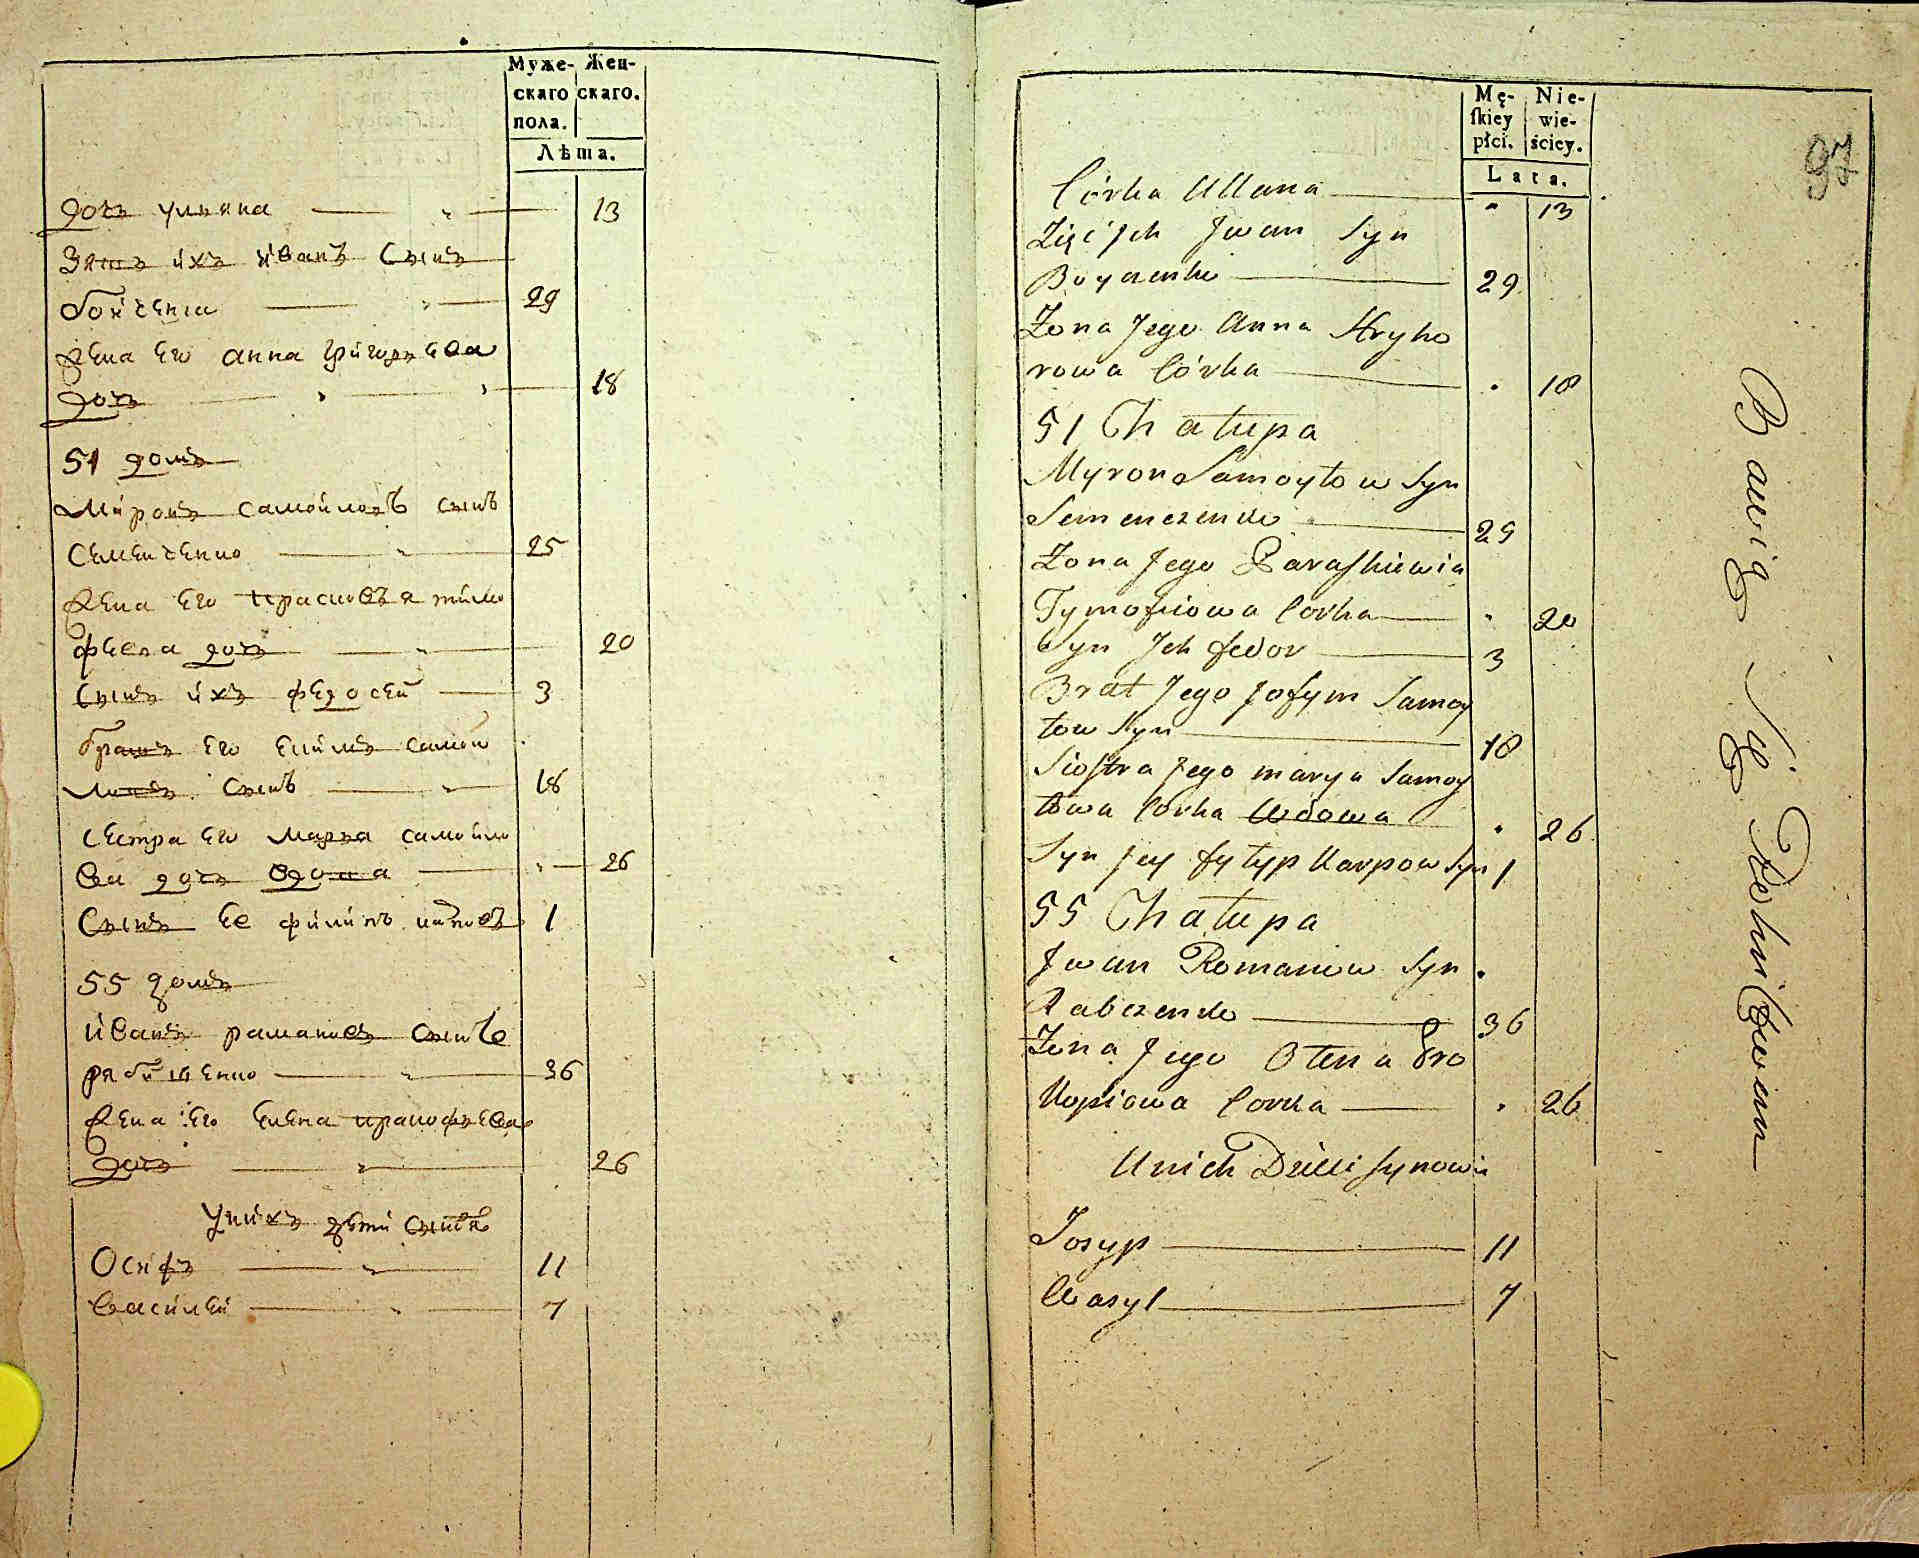 Муже-
скаго
пола.
Жен-
скаго.
Лѣта.
дочь ульяна 13
Зять ихъ иванъ Сынъ
бойченка 29
Жена его анна григорьева
дочь 18
51 домъ
Миронъ самойловъ сынъ
Семенченко 25
Жена его прасковья тимо
феева дочь 20
Сынъ ихъ федосей 3
братъ его ефимъ самой
ловъ Сынъ 18
сестра его марья самойло
ва дочь вдова 26
Сынъ ее филипъ карповъ 1
55 домъ
иванъ романовъ Сынъ
рабченко 36
Жена его елена
дочь 26
у нихъ дѣти сыновья
Осифъ 11
Василей 7
Mę-
skiey
płci.
Nie-
wie-
ściey.
Lata.
97
Córka Ullana " 13
Zięć Jch Jwan Syn
Boyczenko 29
Żona Jego Anna Hryho
rowa Córka " 18
51 Chałupa
Myron Samoyłow Syn
Semenczenko 25
Żona Jego Paraskiewia
Tymofiowa Corka " 20
Syn Jch fedor 3
Brat Jego Jofym Samoy
łow Syn 18
Siostra Jego marya Samoy
łowa Corka Wdowa " 26
Syn Jey fyłyp Karpow Syn 1
55 Chałupa
Jwan Romanow Syn
Rabczenko 36
Żona Jego Ołena Pro
kopiowa Corka " 26
U nich Dzieci Synowie
Josyp 11
Wasyl 7
Bawią Się Rolnictwem